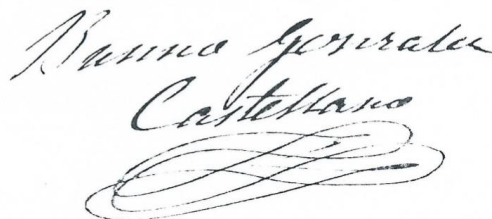 Bruno Gonzalez
Castellano